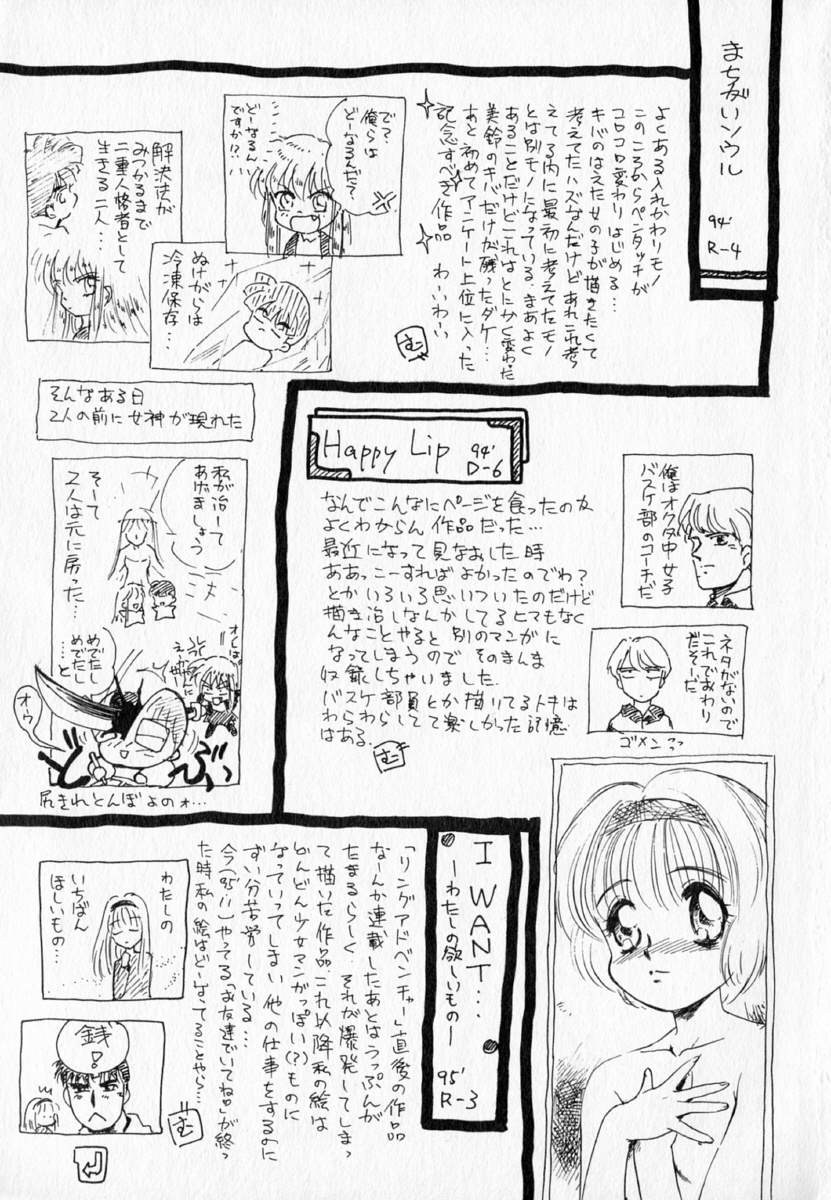 まちがいソウル
94' R-4
よくある入れかわりモノ
このころからペンタッチが
コロコロ変わりはじめる…
キバのはえた女の子が描きたくて
考えてたハズなんだけどあれこれ考
えてる内に最初に考えてたモノ
とは別モノになっている。まあよく
あることだけどこれはとにかく変わった
美鈴のキバだけが残ったダケ…
あと初めてアンケート上位に入った
記念すべき作品 わーいわーい
む
で?
俺らは
どーなるんだ?
どーなるん
ですか!?
ぬけがらは
冷凍保存…
解決法が
みつかるまで
二重人格者として
生きる二人…
そんなある日
2人の前に女神が現れた
私が治して
あげましょう
そして
2人は元に戻った…
めでたし
めでたし
…と
オウ
尻きれとんぼよのォ…
Happy Lip 94' D-6
なんでこんなにページを食ったのか
よくわからん作品だった…
最近になって見なおした時
ああっこーすればよかったのでわ?
とかいろいろ思いついたのだけど
描き治しなんかしてるヒマもなく
んなことやると別のマンガに
なってしまうのでそのまんま
収録しちゃいました.
バスケ部員とか描いてるトキは
わらわらしてて楽しかった記憶
はある.
む
俺はオクタ中女子
バスケ部のコーチだ
ネタがないので
これでおわり
だそーだ
ゴメンっっ
I WANT…
―わたしの欲しいもの―
95' R-3
「リングアドベンチャー」直後の作品
なーんか連載したあとはうっぷんが
たまるらしく それが爆発してしまっ
て描いた作品.これ以降私の絵は
どんどん少女マンガっぽい(?)ものに
なっていってしまい他の仕事をするのに
ずい分苦労している…
今(95'11)やってる「お友達でいてね」が終っ
た時私の絵はどーなってることやら…
む
わたしの
いちばん
ほしいもの…
銭!